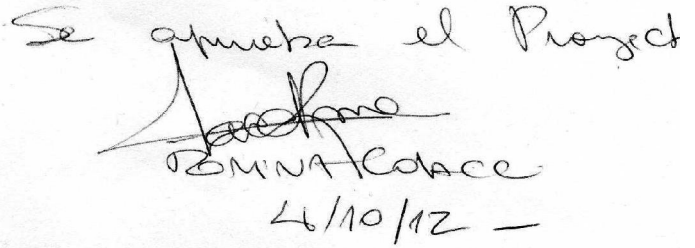 Se aprueba el Proyect
ROMINA Colace
4/10/12 —